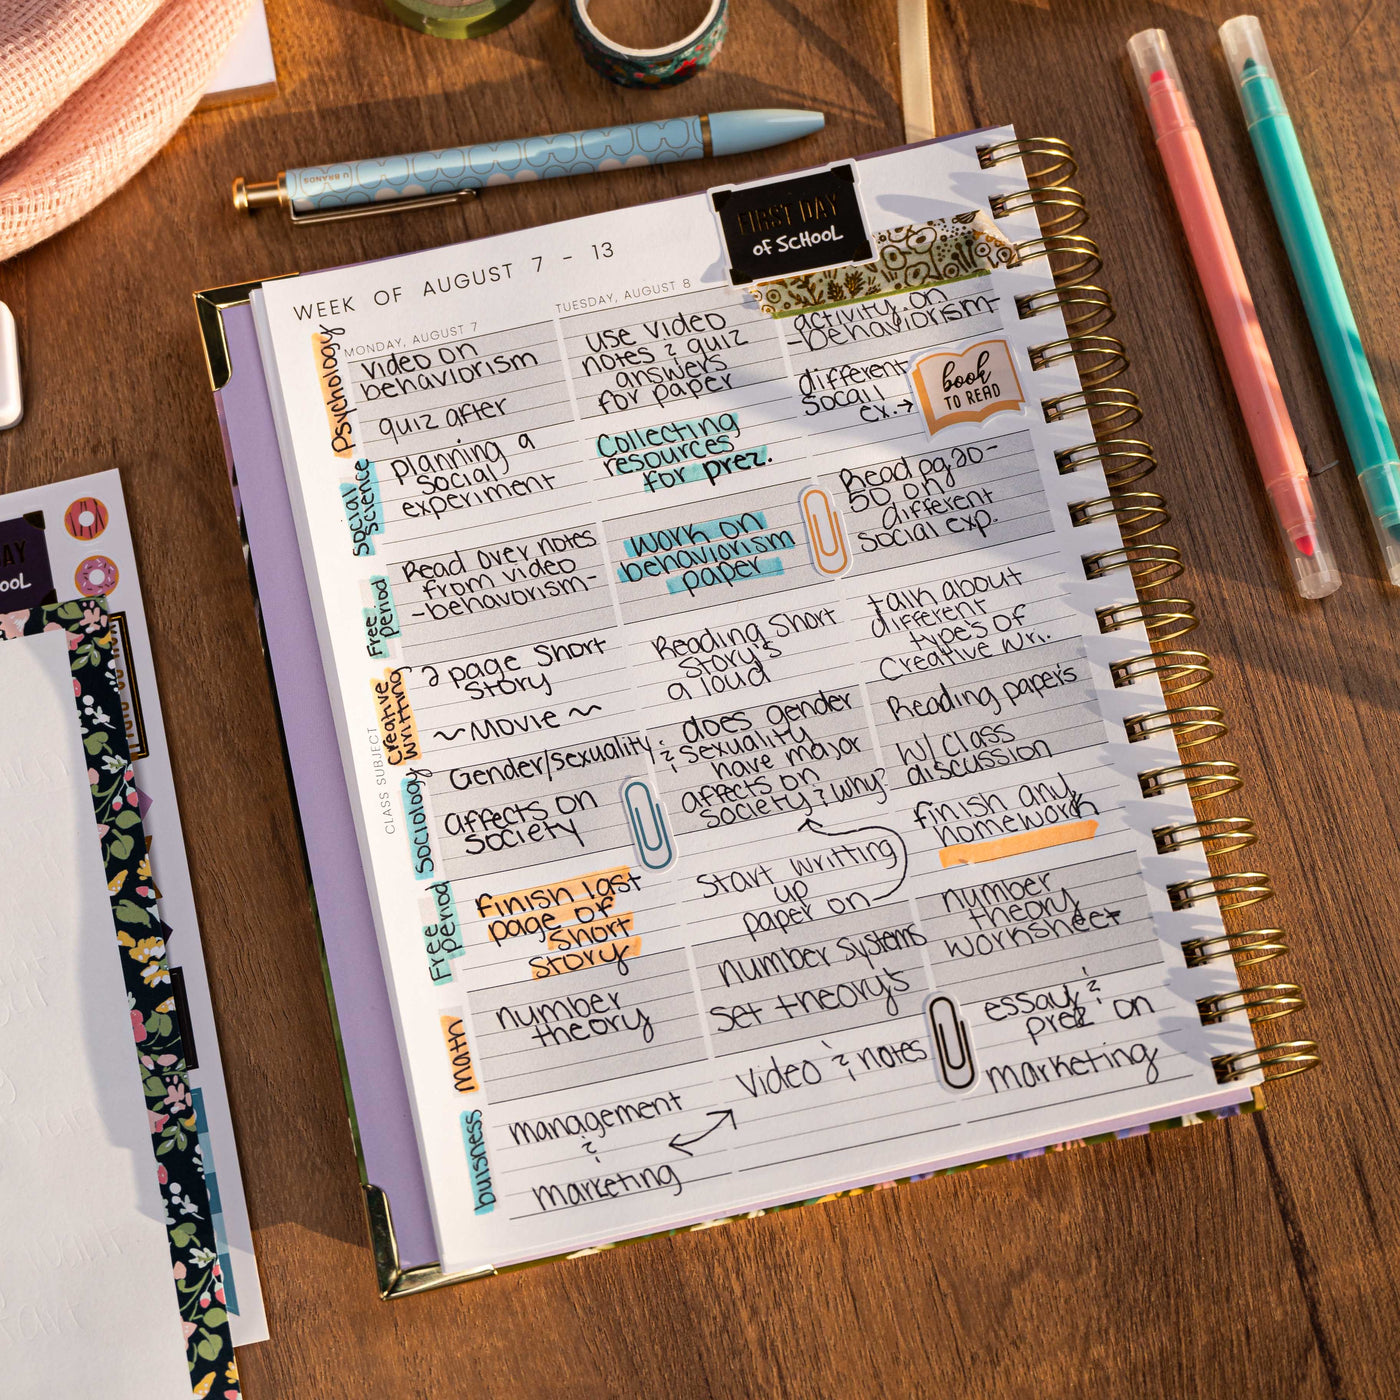 U BRANDS
FIRST DAY
OF SCHOOL
WEEK OF AUGUST 7 - 13
MONDAY, AUGUST 7
TUESDAY, AUGUST 8
CLASS SUBJECT
Psychology
video on
behaviorism
quiz after
use video
notes & quiz
answers
for paper
activity on
-behaviorism-
Social
Science
planning a
social
experiment
Collecting
resources
for prez.
different
socail
ex.→
book
TO READ
Free
Period
Read over notes
from video
-behavorism-
work on
behaviorism
paper
Read pg 20-
50 on
different
social exp.
Creative
writing
2 page short
story
~Movie~
Reading short
story's
a loud
talk about
different
types of
Creative wri.
Sociology
Gender/sexuality
affects on
society
does gender
& sexuality
have major
affects on
society & why?
Reading papers
w/ class
discussion
Free
period
finish last
page of
short
story
start writting
up
paper on
finish any
homework
Math
number
theory
number systems
set theory's
number
theory
worksheet
buisness
management
&
marketing
video & notes
essay &
prez on
marketing
AY
OOL